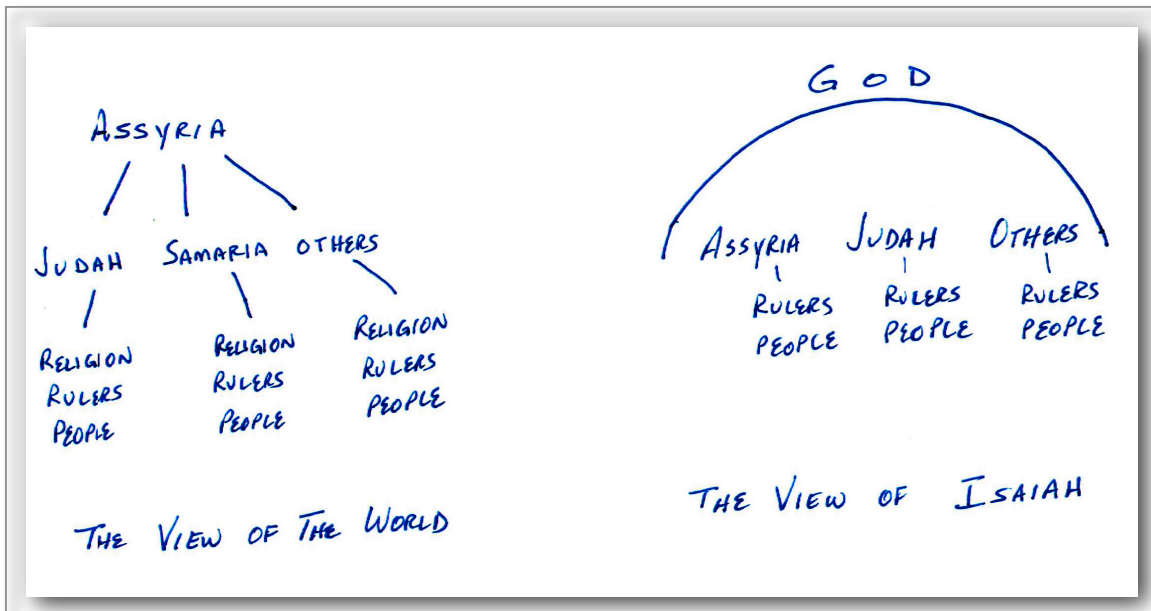 ASSYRIA
JUDAH SAMARIA OTHERS
RELIGION
RULERS
PEOPLE
RELIGION
RULERS
PEOPLE
RELIGION
RULERS
PEOPLE
THE VIEW OF THE WORLD
GOD
ASSYRIA JUDAH OTHERS
RULERS
PEOPLE
RULERS
PEOPLE
RULERS
PEOPLE
THE VIEW OF ISAIAH